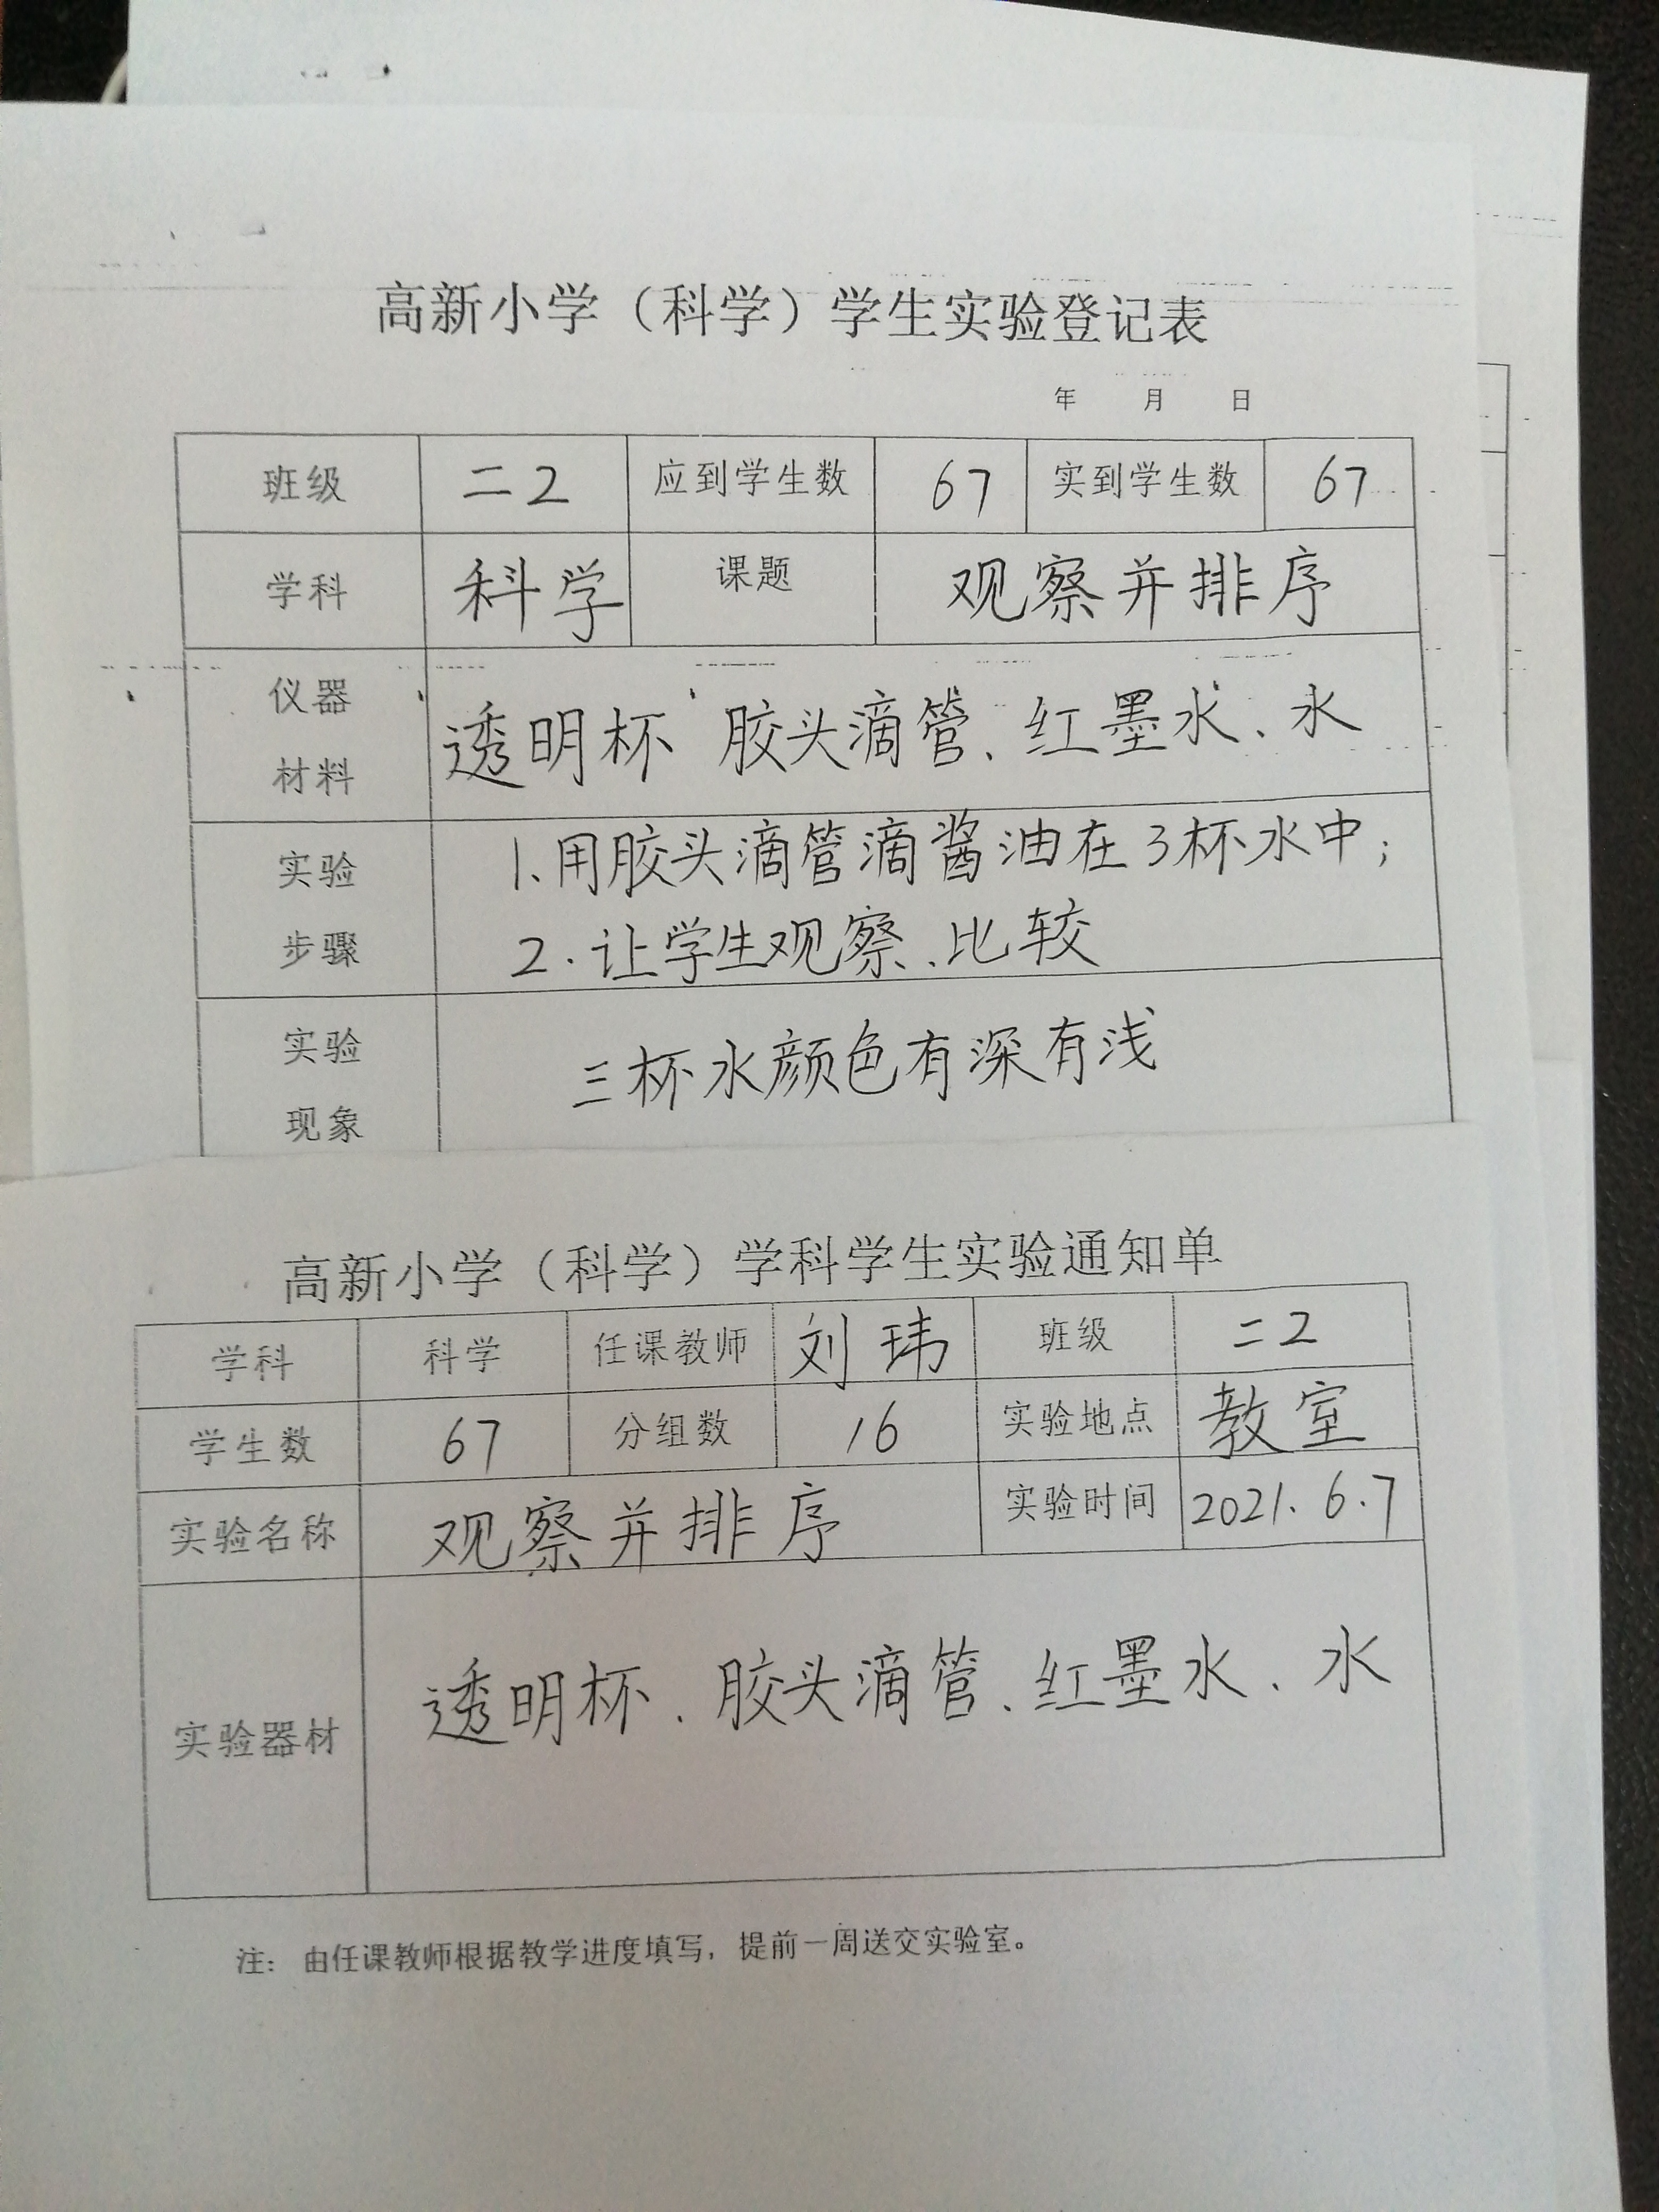 高新小学（科学）学生实验登记表
年 月 日
班级 二2 应到学生数 67 实到学生数 67
学科 科学 课题 观察并排序
仪器
材料
透明杯 胶头滴管、红墨水、水
实验
步骤
1.用胶头滴管滴酱油在3杯水中；
2.让学生观察、比较
实验
现象
三杯水颜色有深有浅
高新小学（科学）学科学生实验通知单
学科 科学 任课教师 刘玮 班级 二2
学生数 67 分组数 16 实验地点 教室
实验名称 观察并排序 实验时间 2021.6.7
实验器材 透明杯、胶头滴管、红墨水、水
注：由任课教师根据教学进度填写，提前一周送交实验室。